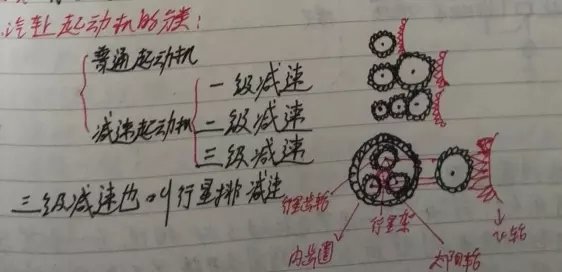 汽车起动机的分类:
普通起动机
减速起动机
一级减速
二级减速
三级减速
三级减速也叫行星排减速
行星齿轮
行星架
内齿圈
太阳轮
飞轮